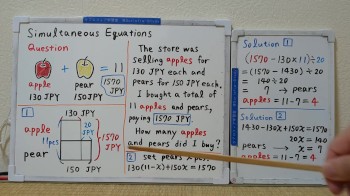 Simultaneous Equations
Question
+ = 11
1570 JPY
apple
130 JPY
pear
150 JPY
The store was
selling apples for
130 JPY each and
pears for 150 JPY each.
I bought a total of
11 apples and pears,
paying 1570 JPY.
How many apples
and pears did I buy?
1
130 JPY
apple
11pcs
pear
20
JPY
1570
JPY
150 JPY
2 set pears
130(11-x)+150x=1570
Solution 1
(1570-130×11)÷20
=(1570-1430)÷20
= 140 ÷20
= 7 → pears
apples=11-7=4
Solution 2
1430-130x+150x=1570
20x = 140
pears → x = 7
apples=11-7=4